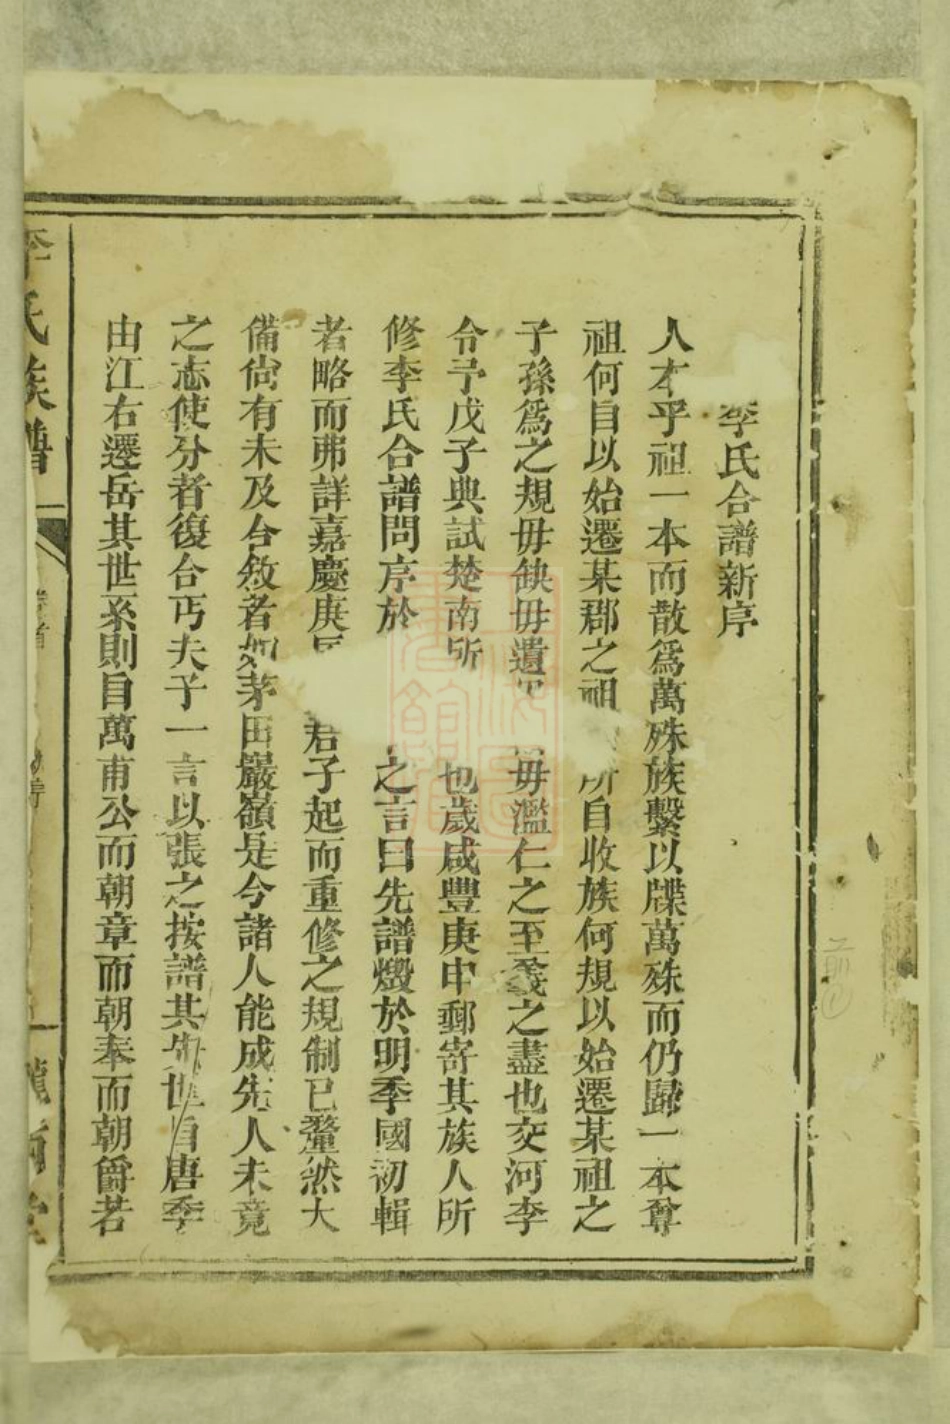 李氏合譜新序
人本乎祖一本而散爲萬殊族繫以牒萬殊而仍歸一本尊
祖何自以始遷某郡之祖所自收族何規以始遷某祖之
子孫爲之規毋缺毋遺毋濫仁之至義之盡也交河李
令予戊子典試楚南所也歲咸豐庚申郵寄其族人所
修李氏合譜問序於之言曰先譜燬於明季國初輯
者略而弗詳嘉慶庚君子起而重修之規制已釐然大
備尙有未及合敘者如茅田巖嶺是今諸人能成先人未竟
之志使分者復合丐夫子一言以張之按譜其先世自唐季
由江右遷岳其世系則自萬甫公而朝章而朝奉而朝爵若
李氏族譜
卷首